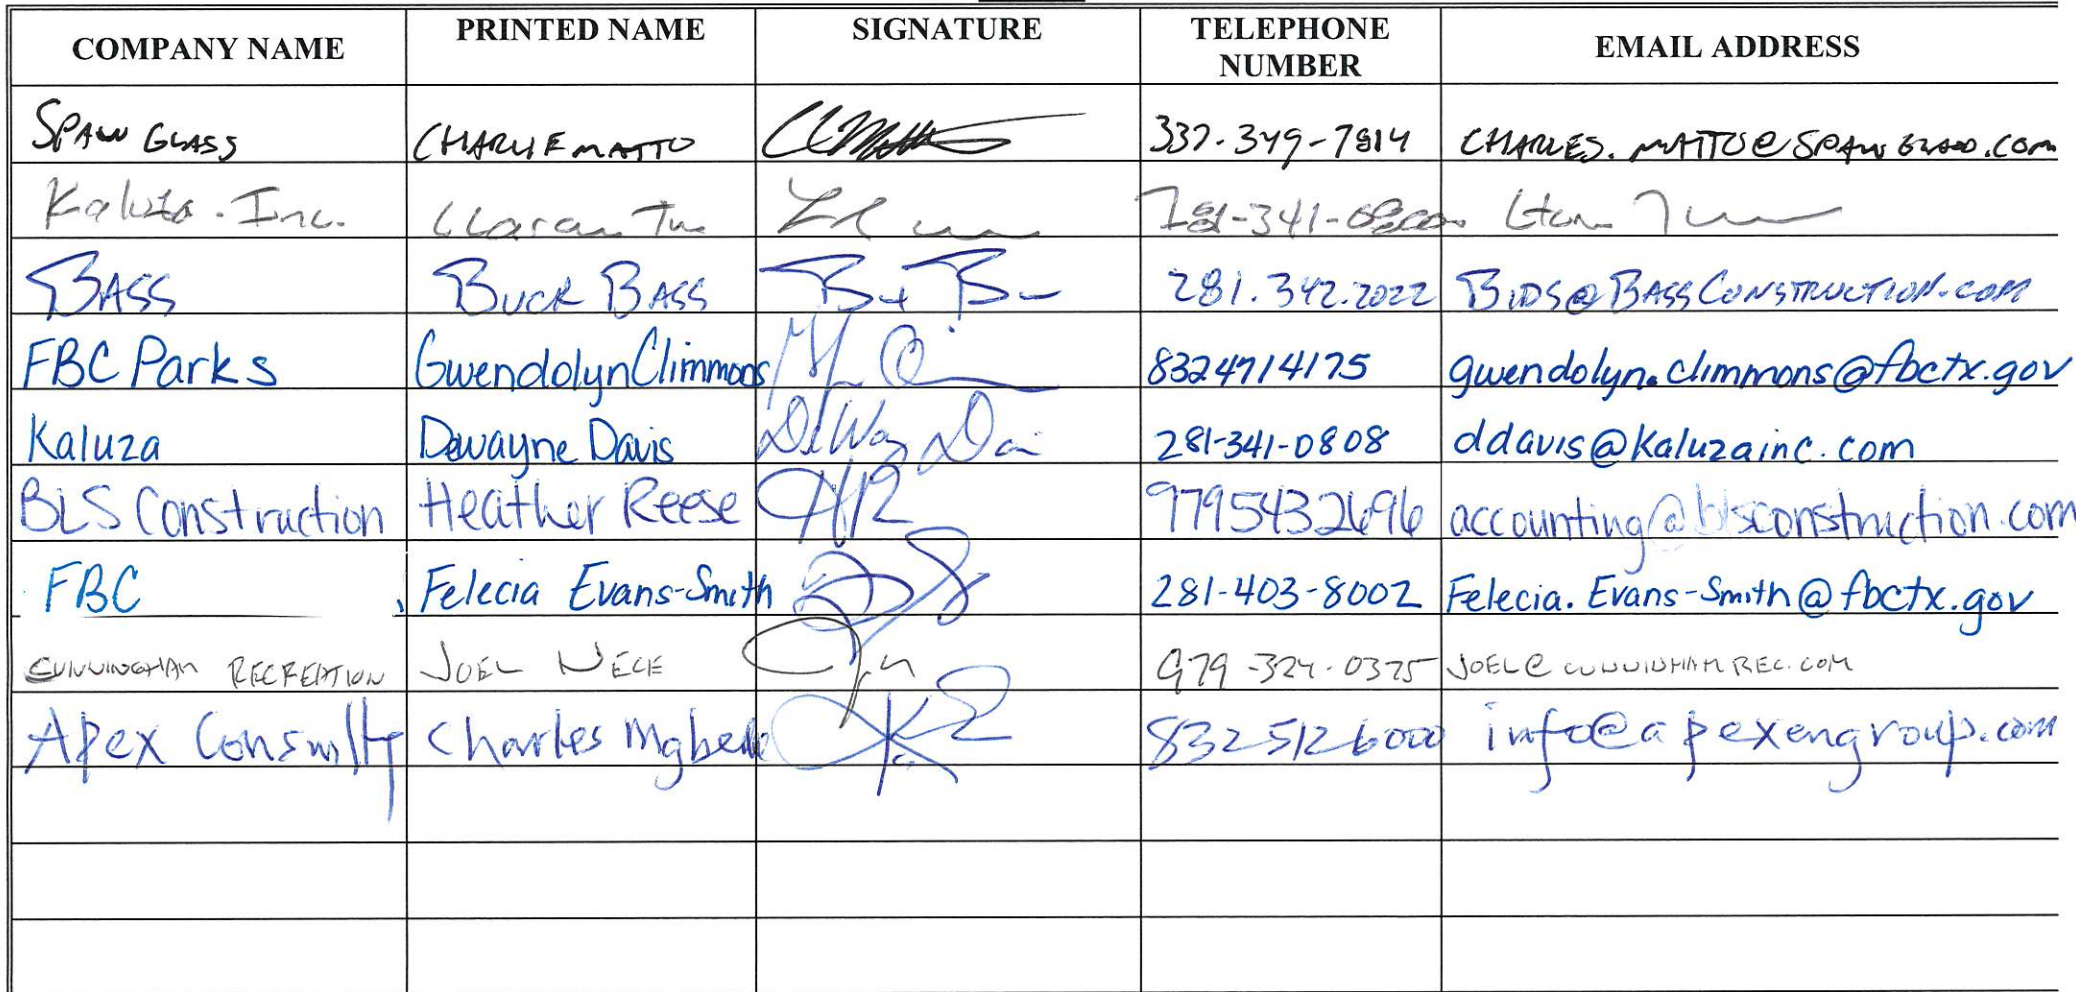 COMPANY NAME PRINTED NAME SIGNATURE TELEPHONE NUMBER EMAIL ADDRESS
SPAW GLASS CHARLIE MATTO 337-349-7814 CHARLES.MATTO@SPAWGLASS.COM
Kaluza. Inc.
BASS BUCK BASS 281.342.2022 BIDS@BASSCONSTRUCTION.COM
FBC Parks Gwendolyn Climmons 8324714175 gwendolyn.climmons@fbctx.gov
Kaluza Dewayne Davis 281-341-0808 ddavis@kaluzainc.com
BLS Construction Heather Reese 9795432696 accounting@blsconstruction.com
FBC Felecia Evans-Smith 281-403-8002 Felecia.Evans-Smith@fbctx.gov
CUNNINGHAM RECREATION JOEL NECE 979-324-0375
Apex Charles 8325126000 info@apexengroup.com